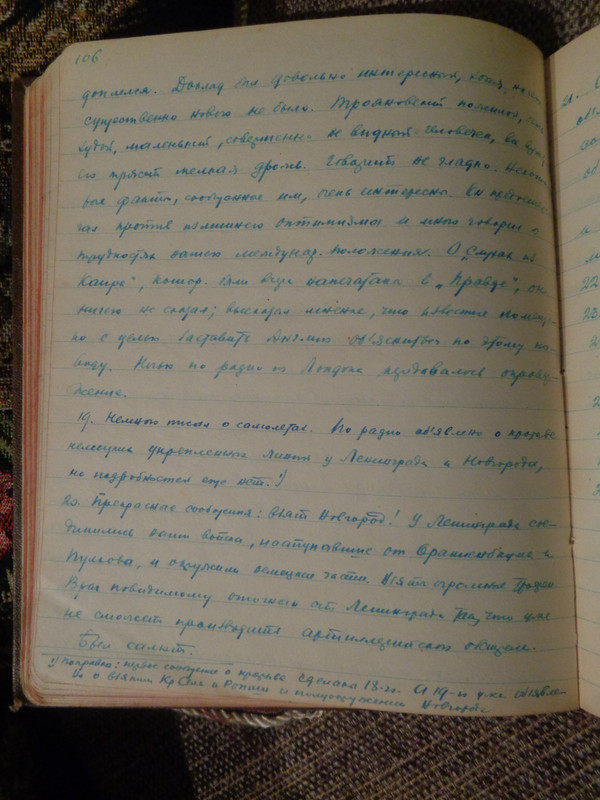 106
доплелся. Доклад был довольно интересный, хотя
существенно нового не было. Трояновский пожилой,
худой, маленький, совершенно не видный человечек,
его трясет мелкая дрожь. Говорит не гладко. Некото
рые факты, сообщенные им, очень интересны. Он
против излишнего оптимизма и много говорил о
трудностях нашего междунар. положения. О „Слухах из
Каира", котор. были вчера напечатаны в „Правде", он
ничего не сказал; высказал мнение, что известие помеще
но с целью заставить Англию об'ясниться по этому по-
воду. Ночью по радио из Лондона передавалось опровер
жение.
19. Немного писал о самолетах. По радио об'явлено о прорыве
немецких укрепленных линий у Ленинграда и Новгорода,
но подробностей еще нет.¹)
20. Прекрасные сообщения: взят Новгород! У Ленинграда сое-
динились наши войска, наступавшие от Ораниенбаума и
Пулкова, и окружили немецкие части. Взяты огромные трофеи.
Враг повидимому отогнан от Ленинграда так, что уже
не сможет производить артиллерийского обстрела.
Был салют.
¹) Поправка: первое сообщение о прорыве сделано 18-го. А 19-го уже об'явле-
но о взятии Кр Села и Ропши и полуокружении Новгорода